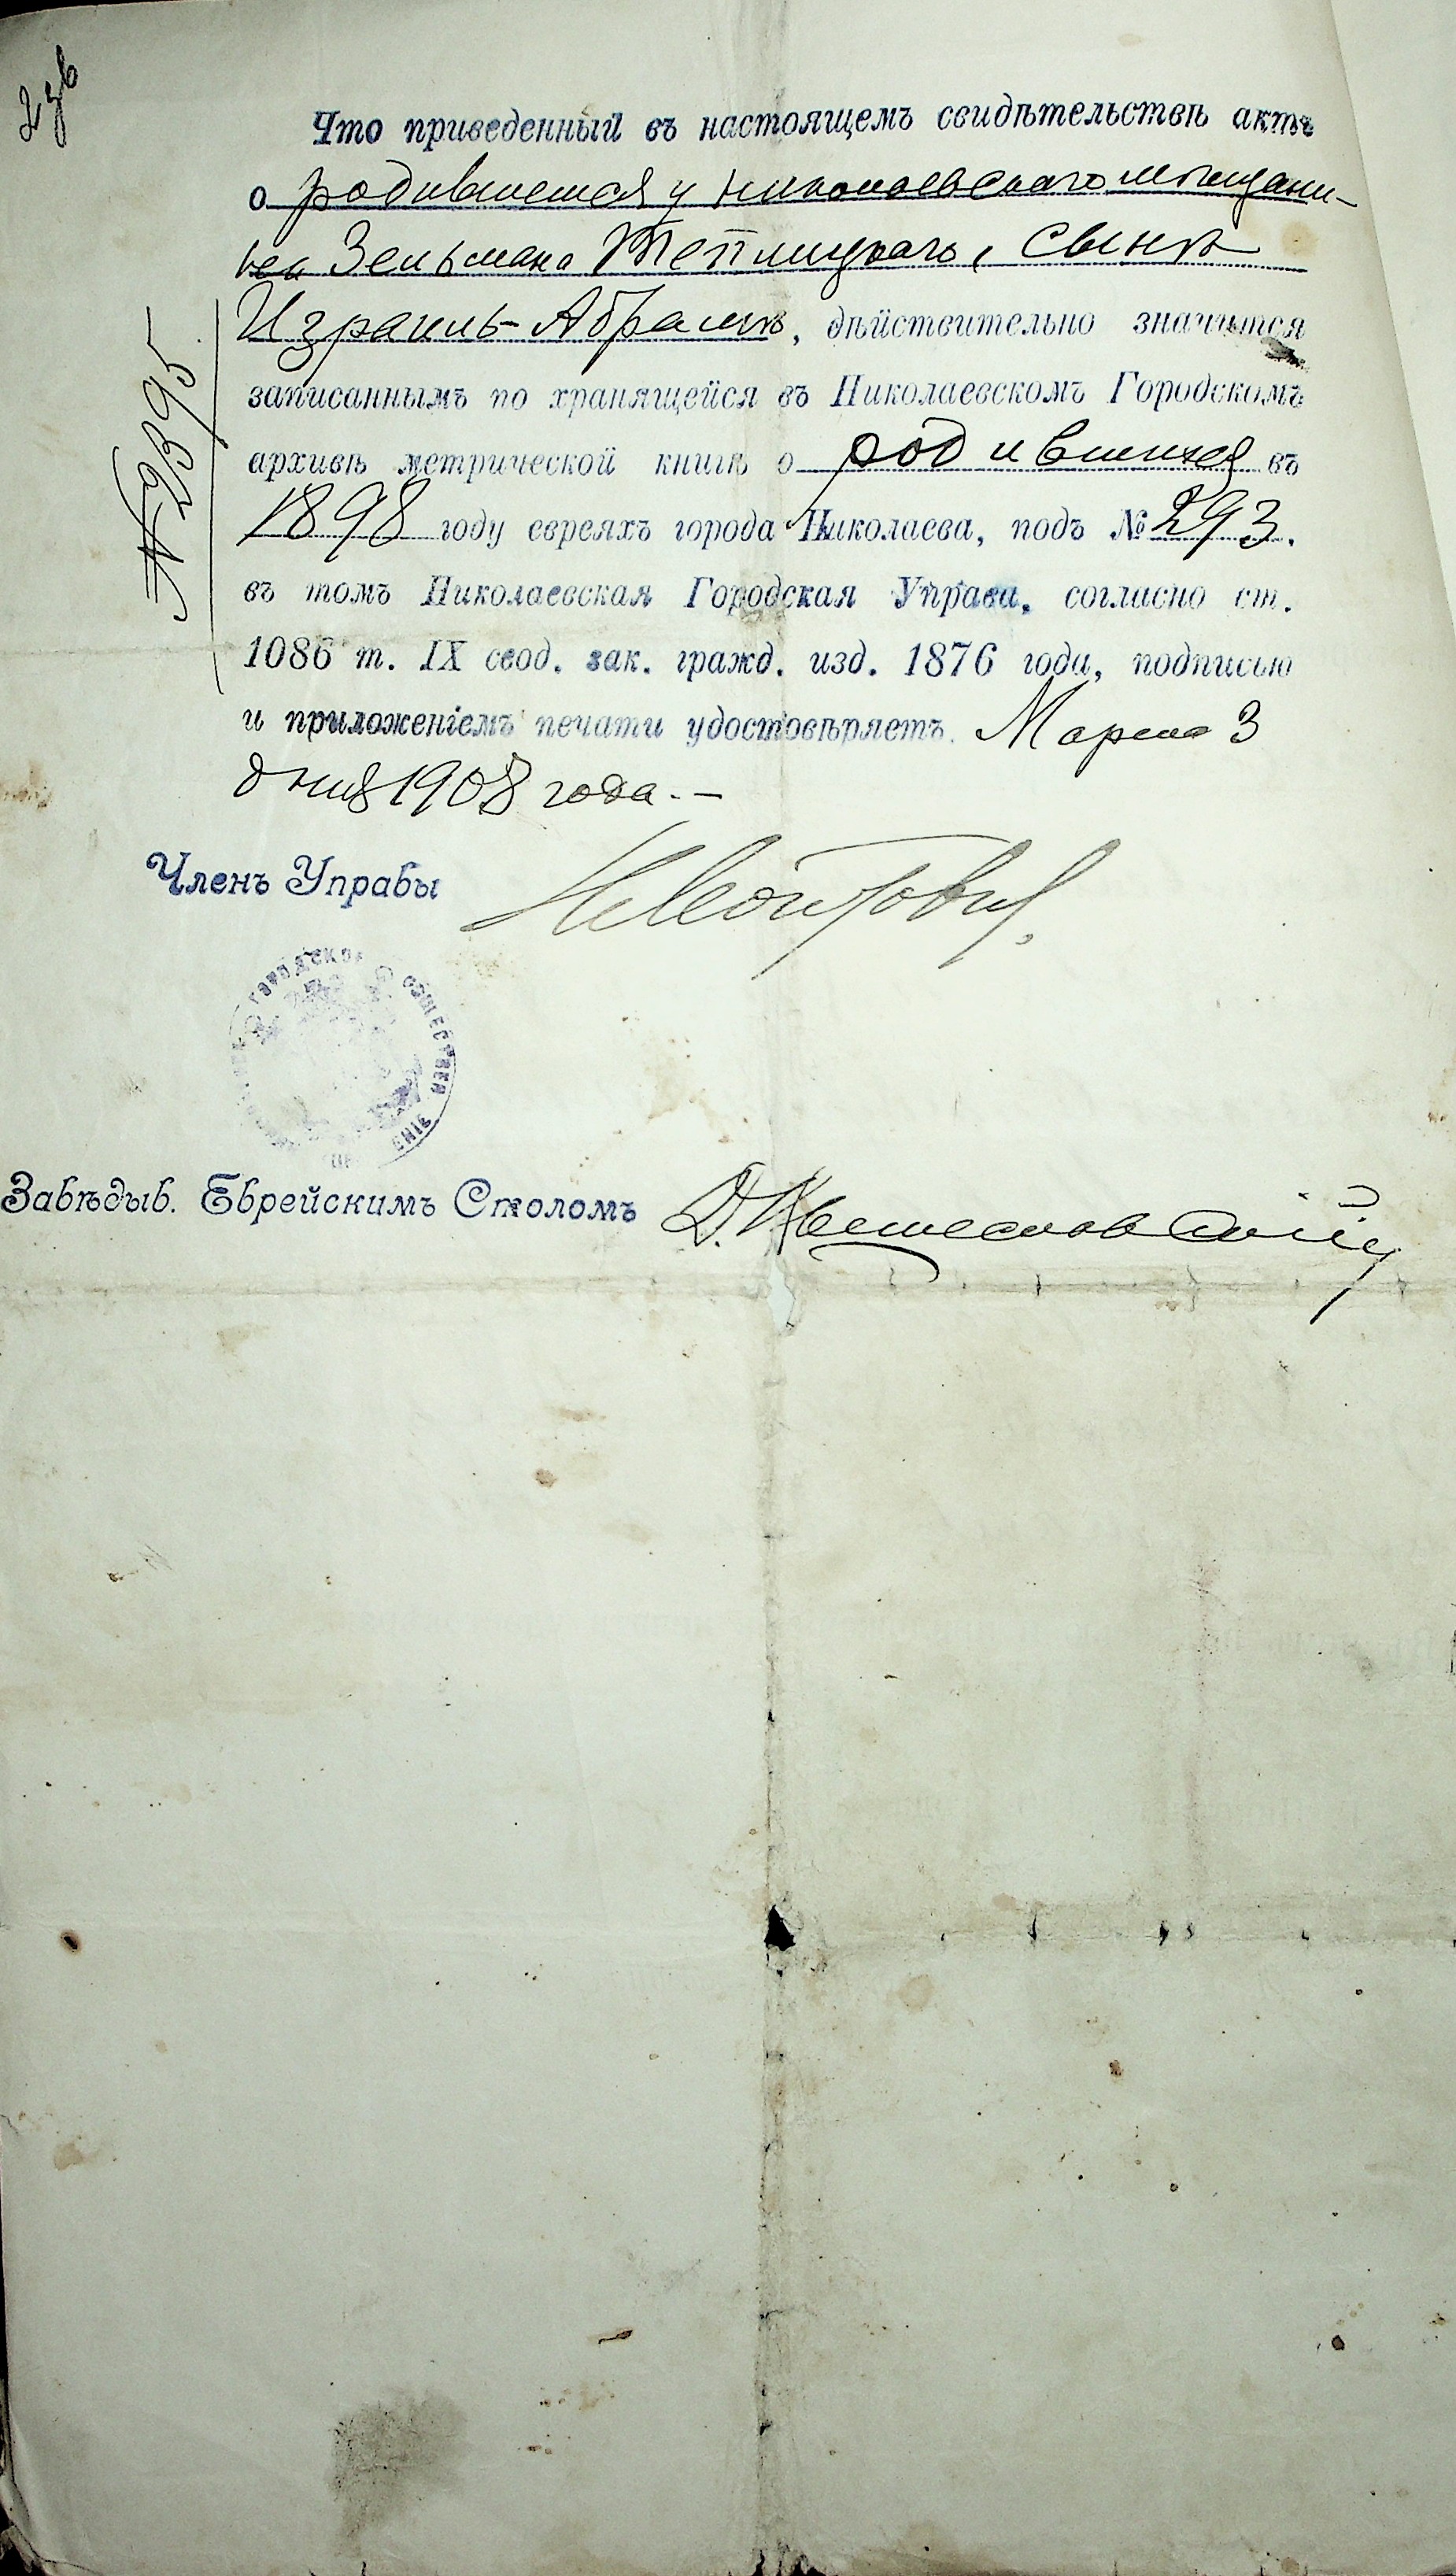 Что приведенный въ настоящемъ свидѣтельствѣ актъ
о родившемся у николаевскаго мѣщани-
на Зельмана Теплицкаго, сынѣ
Израиль-Абрамъ, дѣйствительно значится
записаннымъ по хранящейся въ Николаевскомъ Городскомъ
архивѣ метрической книгѣ о родившихся въ
1898 году евреяхъ города Николаева, подъ № 293.
въ томъ Николаевская Городская Управа, согласно ст.
1086 т. IX свод. зак. гражд. изд. 1876 года, подписью
и приложеніемъ печати удостовѣряетъ. Марта 3
дня 1908 года. —
№ 2395
Членъ Управы
ГОРОДСКОЕ ОБЩЕСТВЕН
Завѣдыв. Еврейскимъ Столомъ